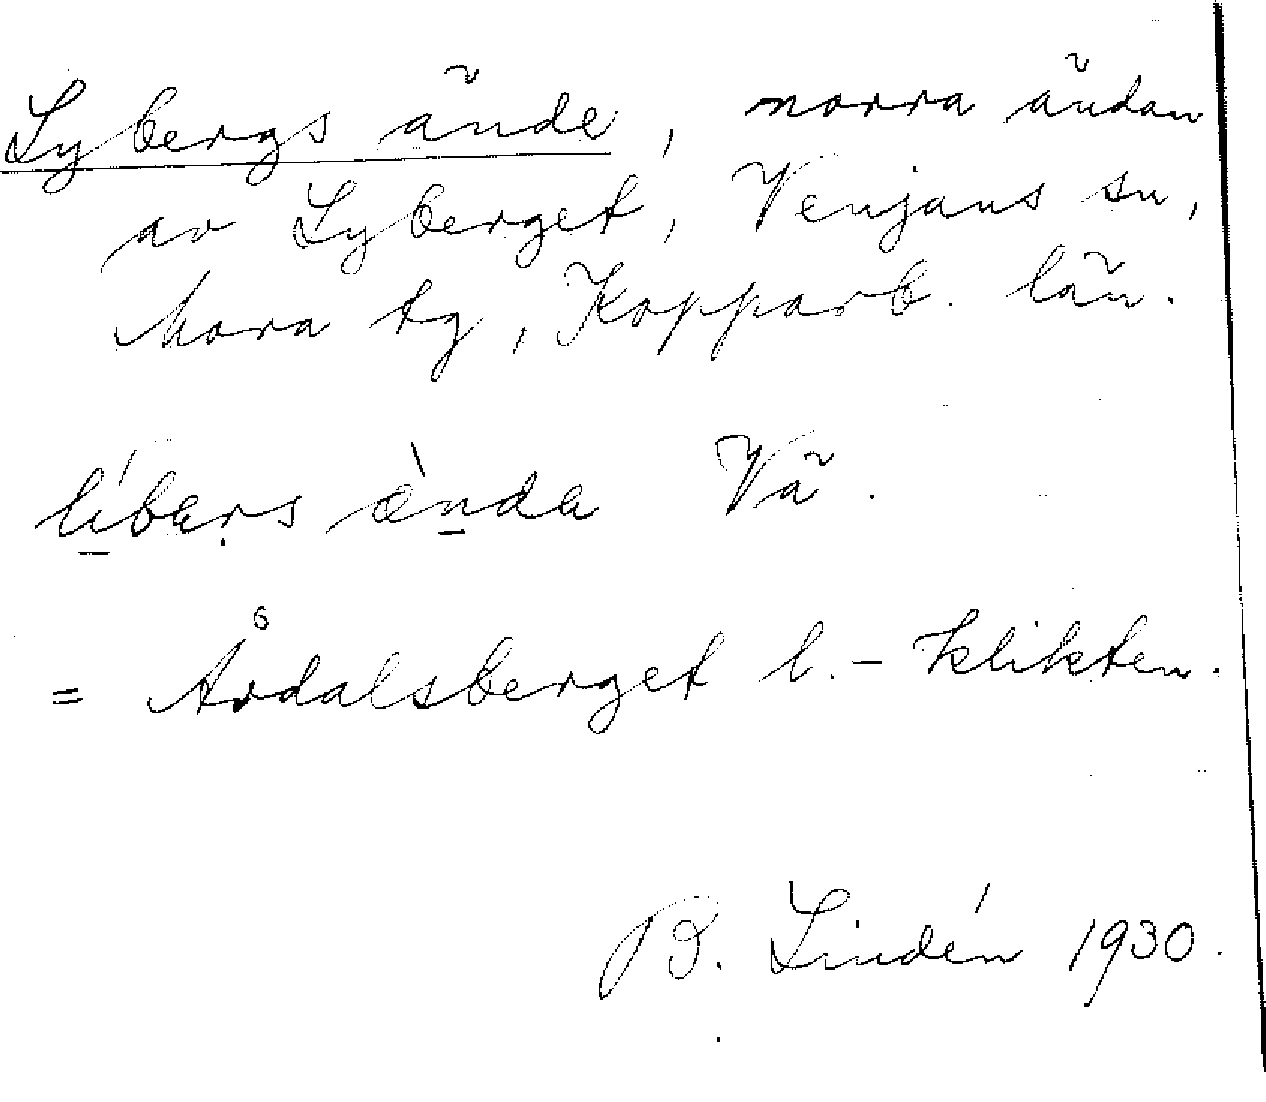 Lybergs ände, norra ändan
av Lyberget, Venjans sn,
Mora tg, Kopparb. län.
líbərs ɛ̀ndɛ Vä.
= Årdalsberget l. - klikten.
B. Lindén 1930.